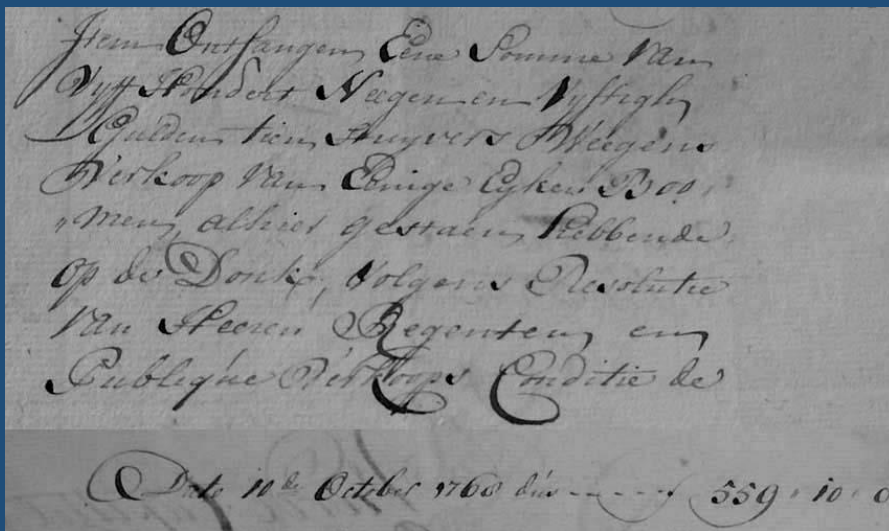 Item Ontfangen Eene Somme van
Vyff Hondert Neegen en Vyfftigh
Gulden tien Stuyvers Weegens
Verkoop van Eenige Eyken Boo„
„men, alhier gestaen hebbende
op de Donk, Volgens Resolutie
van Heeren Regenten, en
Publique Verkoops Conditie de
Dato 10de October 1768 dus - - - - - f 559 „ 10 „ 0